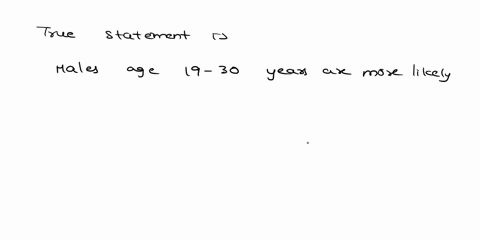 True statement is
Males age 19-30 years are more likely